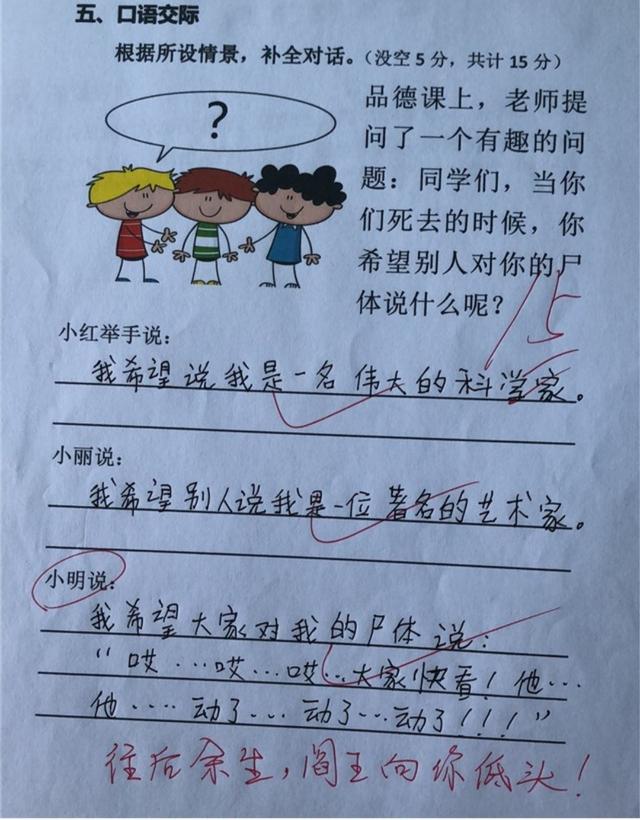 五、口语交际
根据所设情景，补全对话。（没空 5 分，共计 15 分）
?
品德课上，老师提
问了一个有趣的问
题：同学们，当你
们死去的时候，你
希望别人对你的尸
体说什么呢？
15
小红举手说：
我希望说我是一名伟大的科学家。
小丽说：
我希望别人说我是一位著名的艺术家。
小明说：
我希望大家对我的尸体说：
“哎…哎…哎…大家快看！他…
他……动了…动了…动了！！！”
往后余生，阎王向你低头！